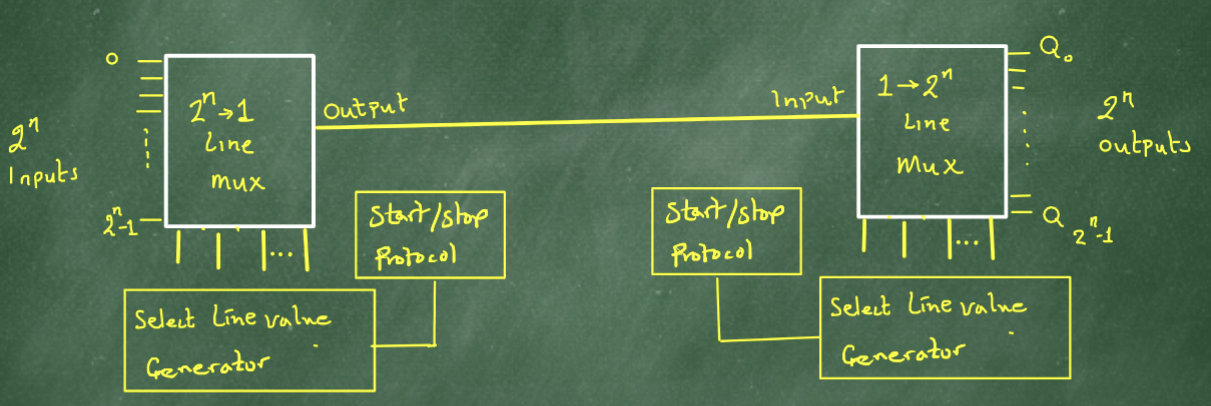 0
2ⁿ
Inputs
2ⁿ-1
2ⁿ→1
Line
mux
Output
Start/stop
Protocol
Select Line value
Generator
Input
1→2ⁿ
Line
Mux
Q₀
2ⁿ
outputs
Q 2ⁿ-1
Start/stop
Protocol
Select Line value
Generator